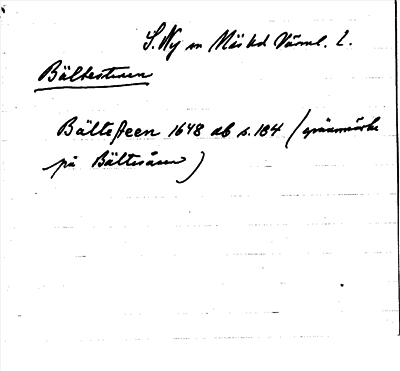 S. Ny sn Näs hd Värml. l.
Bältestenen
Bältesteen 1648 ab s. 184 (gränsmärke
på Bälteåsen)